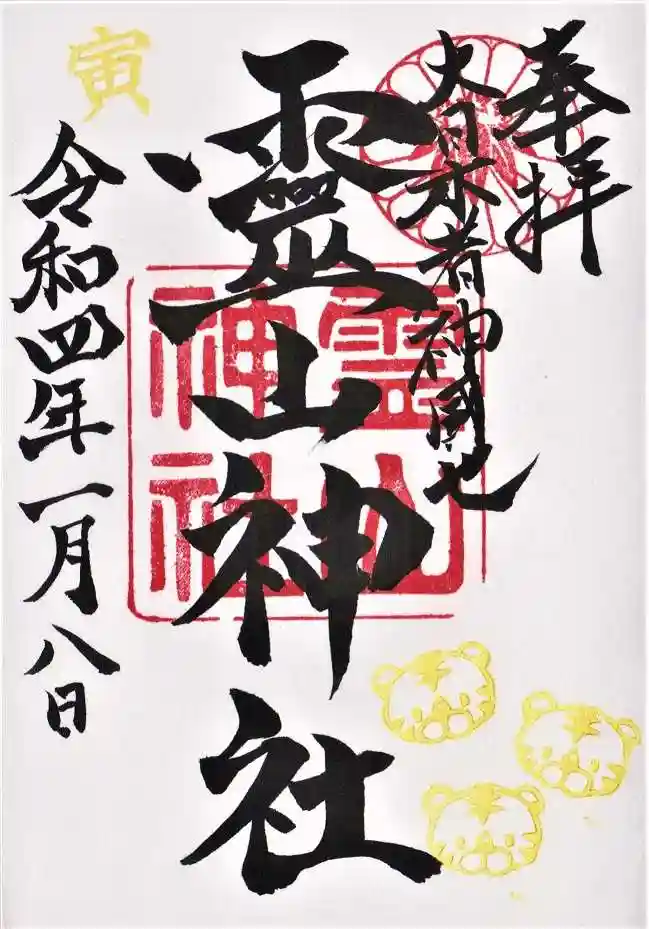 奉拝
大日本者神國也
靈山神社
霊山
神社
令和四年一月八日
寅